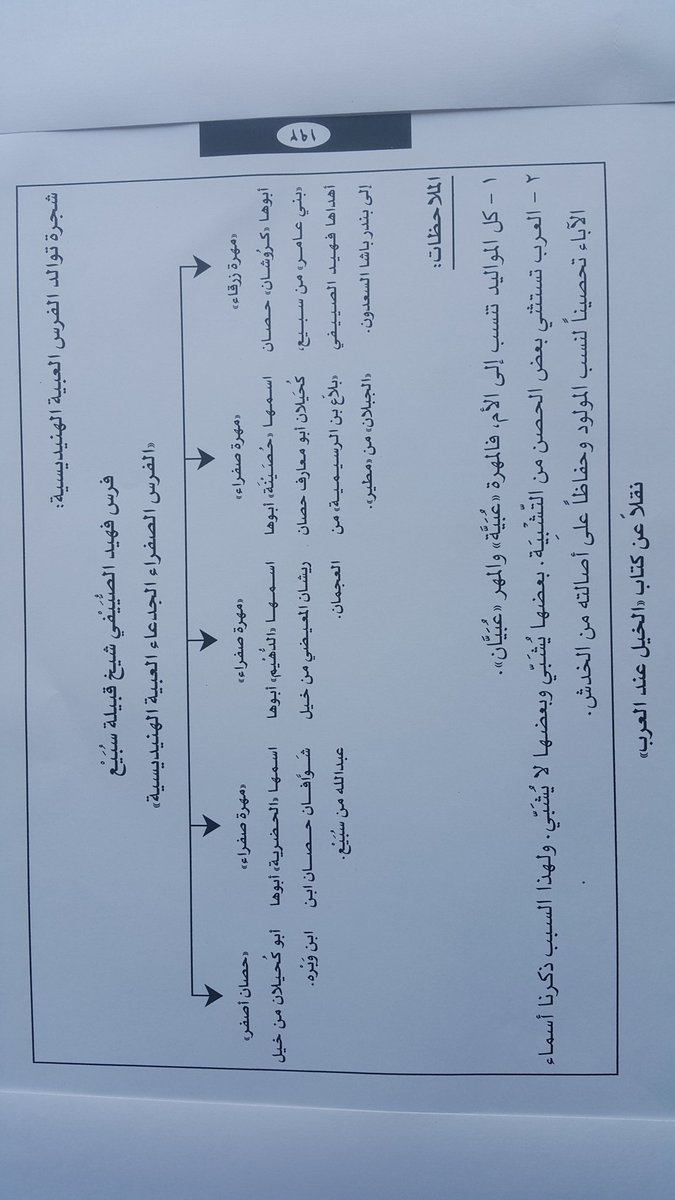 شجرة توالد الفرس العبية الهنيديسية:
فرس فهيد الصُّيَيْفي شيخ قبيلة سُبَيْع
«الفرس الصفراء الجدعاء العبية الهنيديسية»
«مهرة زرقاء»
أبوها «كروشان» حصان
«بني عامر» من سبيع،
أهداها فهيد الصييفي
إلى بندر باشا السعدون.
«مهرة صفراء»
اسمها «حُصَيَنَة» أبوها
كُحَيلان أبو معارف حصان
«بلاّع بن الرسيمية» من
«الجبلان» من «مطير».
«مهرة صفراء»
اسمها «الدُّهَيْم» أبوها
ريشان المعيضي من خيل
العجمان.
«مهرة صفراء»
اسمها «الحضرية» أبوها
شَوَّافان حصان ابن
عبدالله من سُبَيْع.
«حصان أصفر»
أبو كُحَيلان من خيل
ابن وَبَرَه.
الملاحظات:
١ - كل المواليد تنسب إلى الأم، فالمهرة «عُبَيَّة» والمهر «عُبَيَّان».
٢ - العرب تستثني بعض الحصن من التَّشْبِيَة. بعضها يُشَبَّي وبعضها لا يُشَبَّي. ولهذا السبب ذكرنا أسماء
الآباء تحصيناً لنسب المولود وحفاظاً على أصالته من الخدش.
نقلاً عن كتاب «الخيل عند العرب»
١٩٢